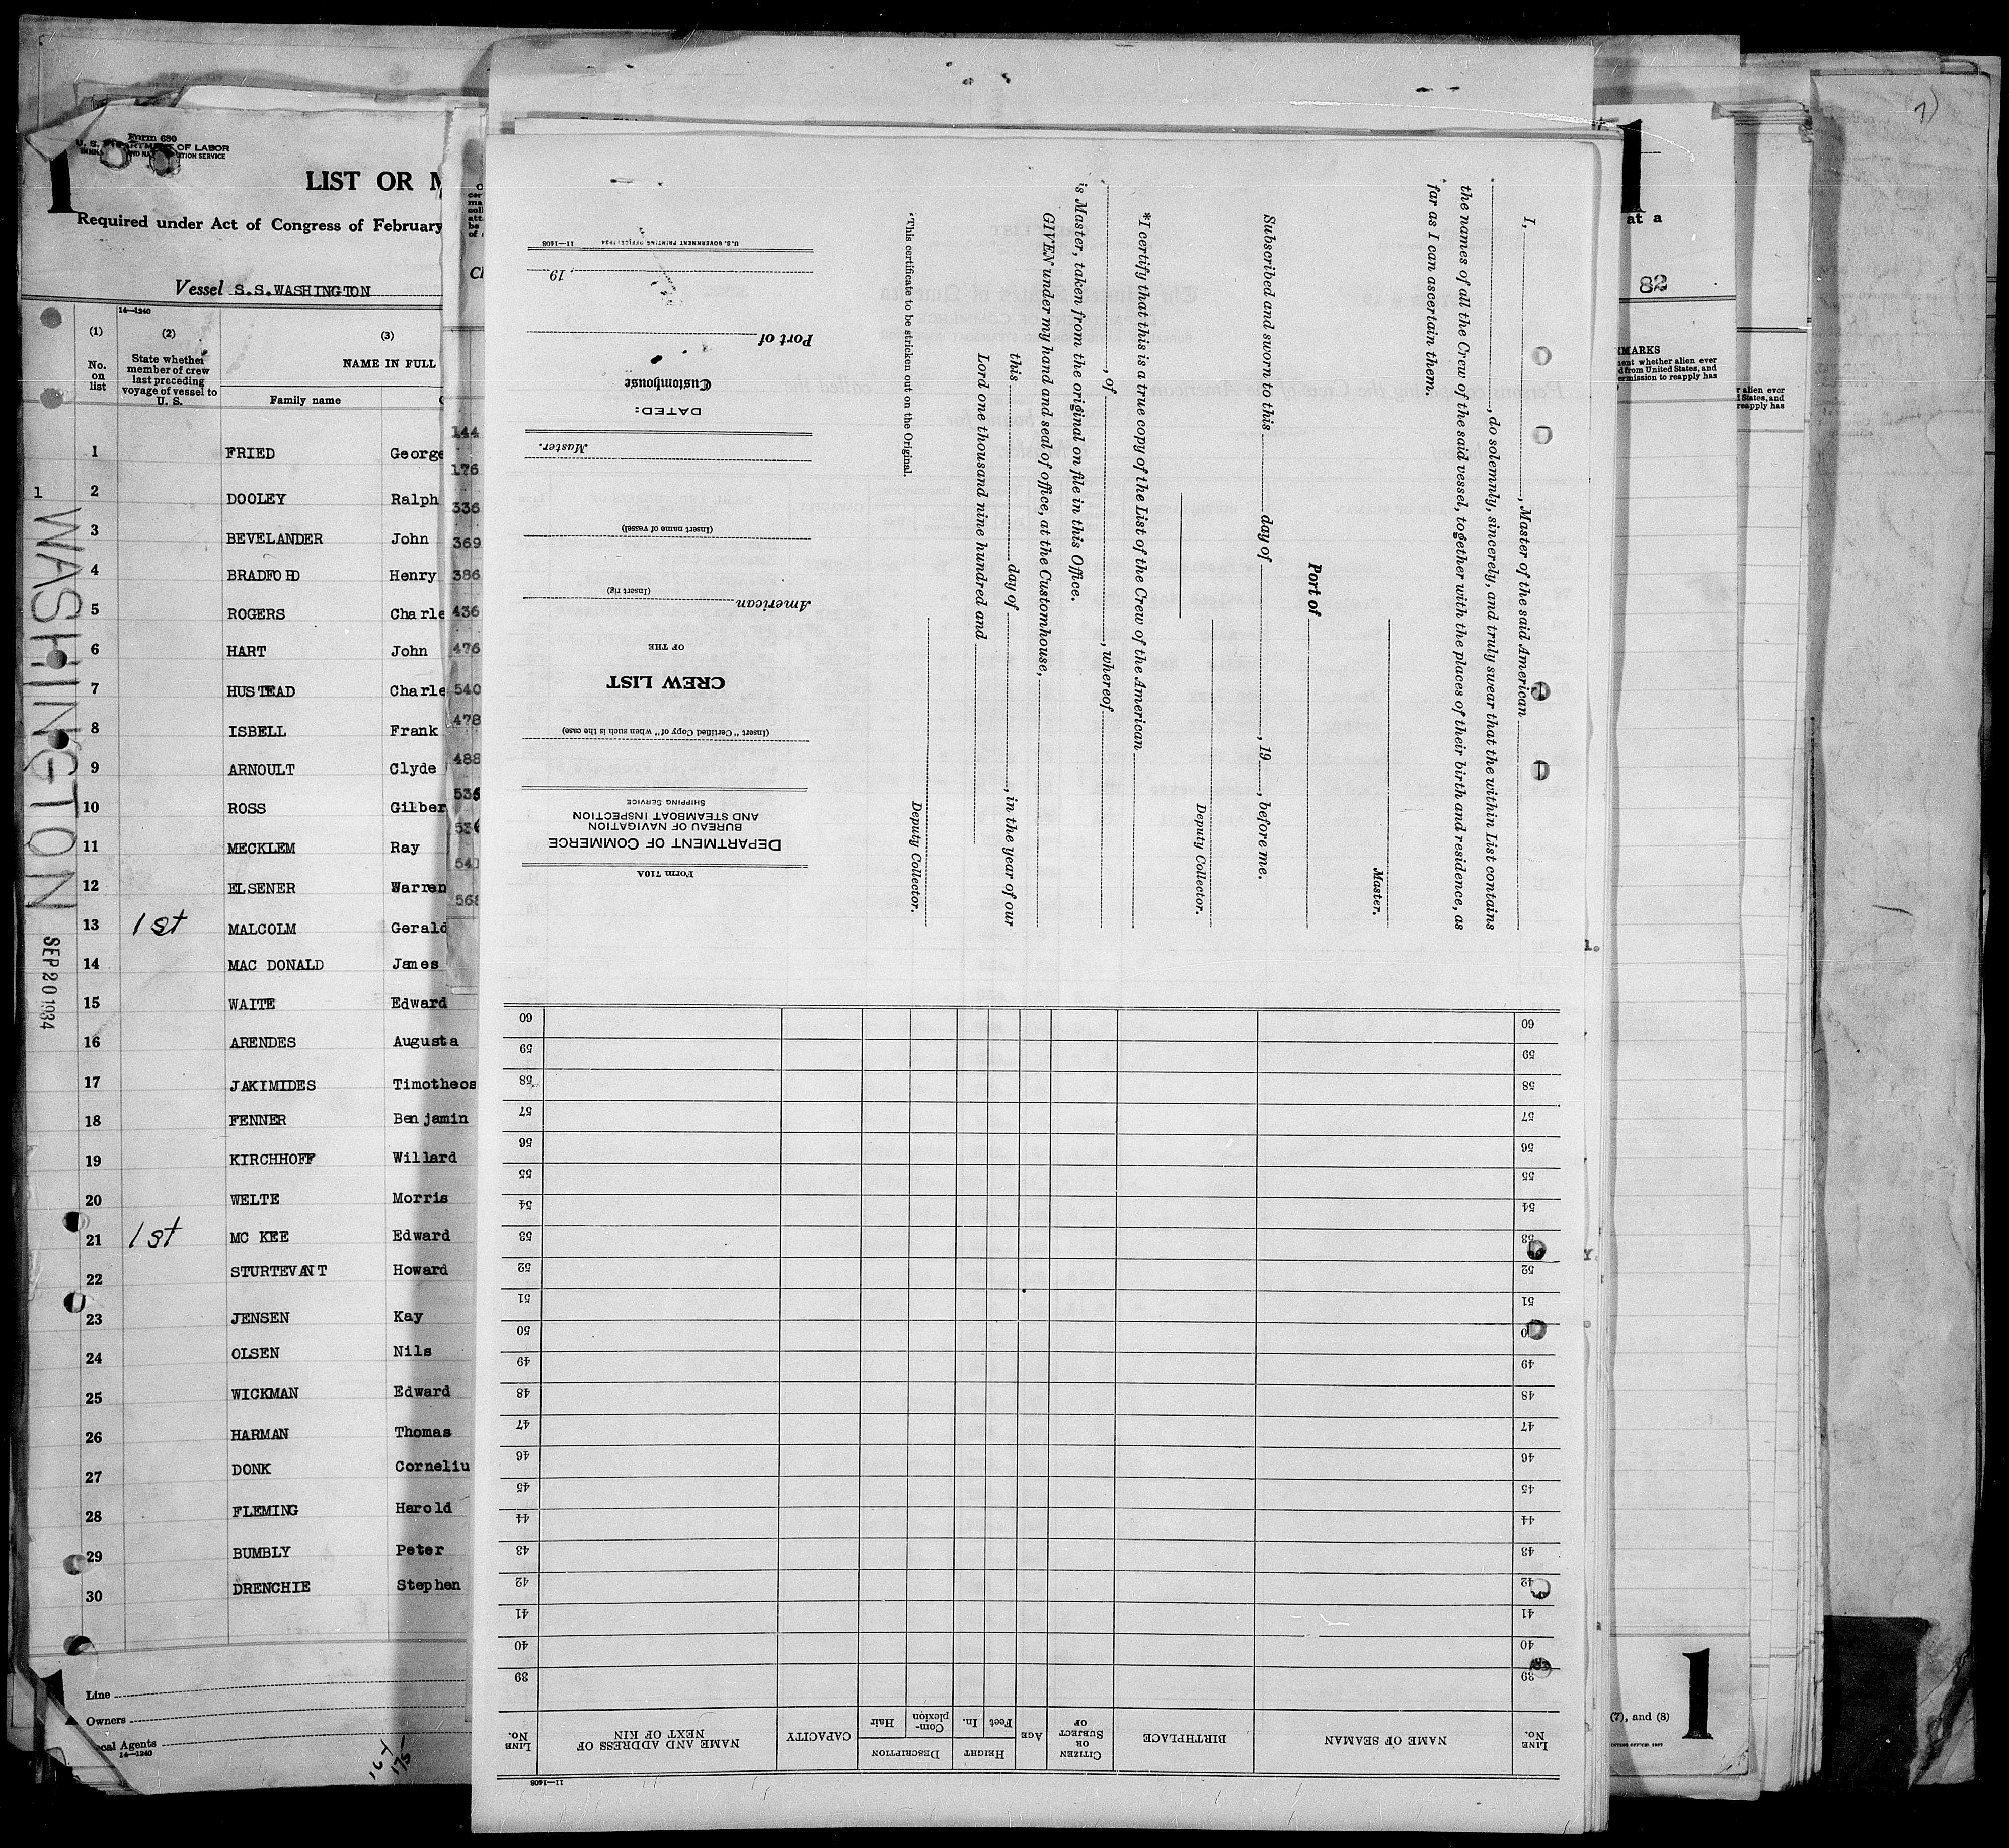 1
Form 680
U. S. DEPARTMENT OF LABOR
LIST OR
Required under Act of Congress of February
Vessel S.S.WASHINGTON
14—1240
(1) (2) (3)
No. on list
State whether member of crew last preceding voyage of vessel to U. S.
NAME IN FULL
Family name
1 FRIED George
2 DOOLEY Ralph
3 BEVELANDER John
4 BRADFORD Henry
5 ROGERS Charle
6 HART John
7 HUSTEAD Charle
8 ISBELL Frank
9 ARNOULT Clyde
10 ROSS Gilber
11 MECKLEM Ray
12 ELSENER Warren
13 1st MALCOLM Gerald
14 MAC DONALD James
15 WAITE Edward
16 ARENDES Augusta
17 JAKIMIDES Timotheos
18 FENNER Benjamin
19 KIRCHHOFF Willard
20 WELTE Morris
21 1st MC KEE Edward
22 STURTEVANT Howard
23 JENSEN Kay
24 OLSEN Nils
25 WICKMAN Edward
26 HARMAN Thomas
27 DONK Corneliu
28 FLEMING Harold
29 BUMBLY Peter
30 DRENCHIE Stephen
1
WASHINGTON
SEP 20 1934
Line
Owners
cal Agents
14—1240
144
176
336
369
386
436
476
540
478
488
535
I, , Master of the said American
, do solemnly, sincerely, and truly swear that the within List contains
the names of all the Crew of the said vessel, together with the places of their birth and residence, as
far as I can ascertain them.
Master.
Port of
Subscribed and sworn to this day of , 19 , before me.
Deputy Collector.
*I certify that this is a true copy of the List of the Crew of the American
, of , whereof
is Master, taken from the original on file in this Office.
GIVEN under my hand and seal of office, at the Customhouse,
this day of , in the year of our
Lord one thousand nine hundred and
Deputy Collector.
*This certificate to be stricken out on the Original.
Form 710A
DEPARTMENT OF COMMERCE
BUREAU OF NAVIGATION
AND STEAMBOAT INSPECTION
SHIPPING SERVICE
(Insert "Certified Copy of" when such is the case)
CREW LIST
OF THE
American
(Insert rig)
(Insert name of vessel)
Master.
DATED:
Customhouse
Port of
, 19
U.S. GOVERNMENT PRINTING OFFICE: 1934 11—1408
11—1408
LINE No.
NAME OF SEAMAN
BIRTHPLACE
CITIZEN OR SUBJECT OF
AGE
HEIGHT
Feet In.
DESCRIPTION
Com-plexion Hair
CAPACITY
NAME AND ADDRESS OF NEXT OF KIN
LINE No.
39 39
40 40
41 41
42 42
43 43
44 44
45 45
46 46
47 47
48 48
49 49
50
51 51
52 52
53 53
54 54
55 55
56 56
57 57
58 58
59 59
60 60
1
at a
82
EMARKS
ent whether alien ever
d from United States, and
ermission to reapply has
r alien ever
States, and
reapply has
(7), and (8)
1